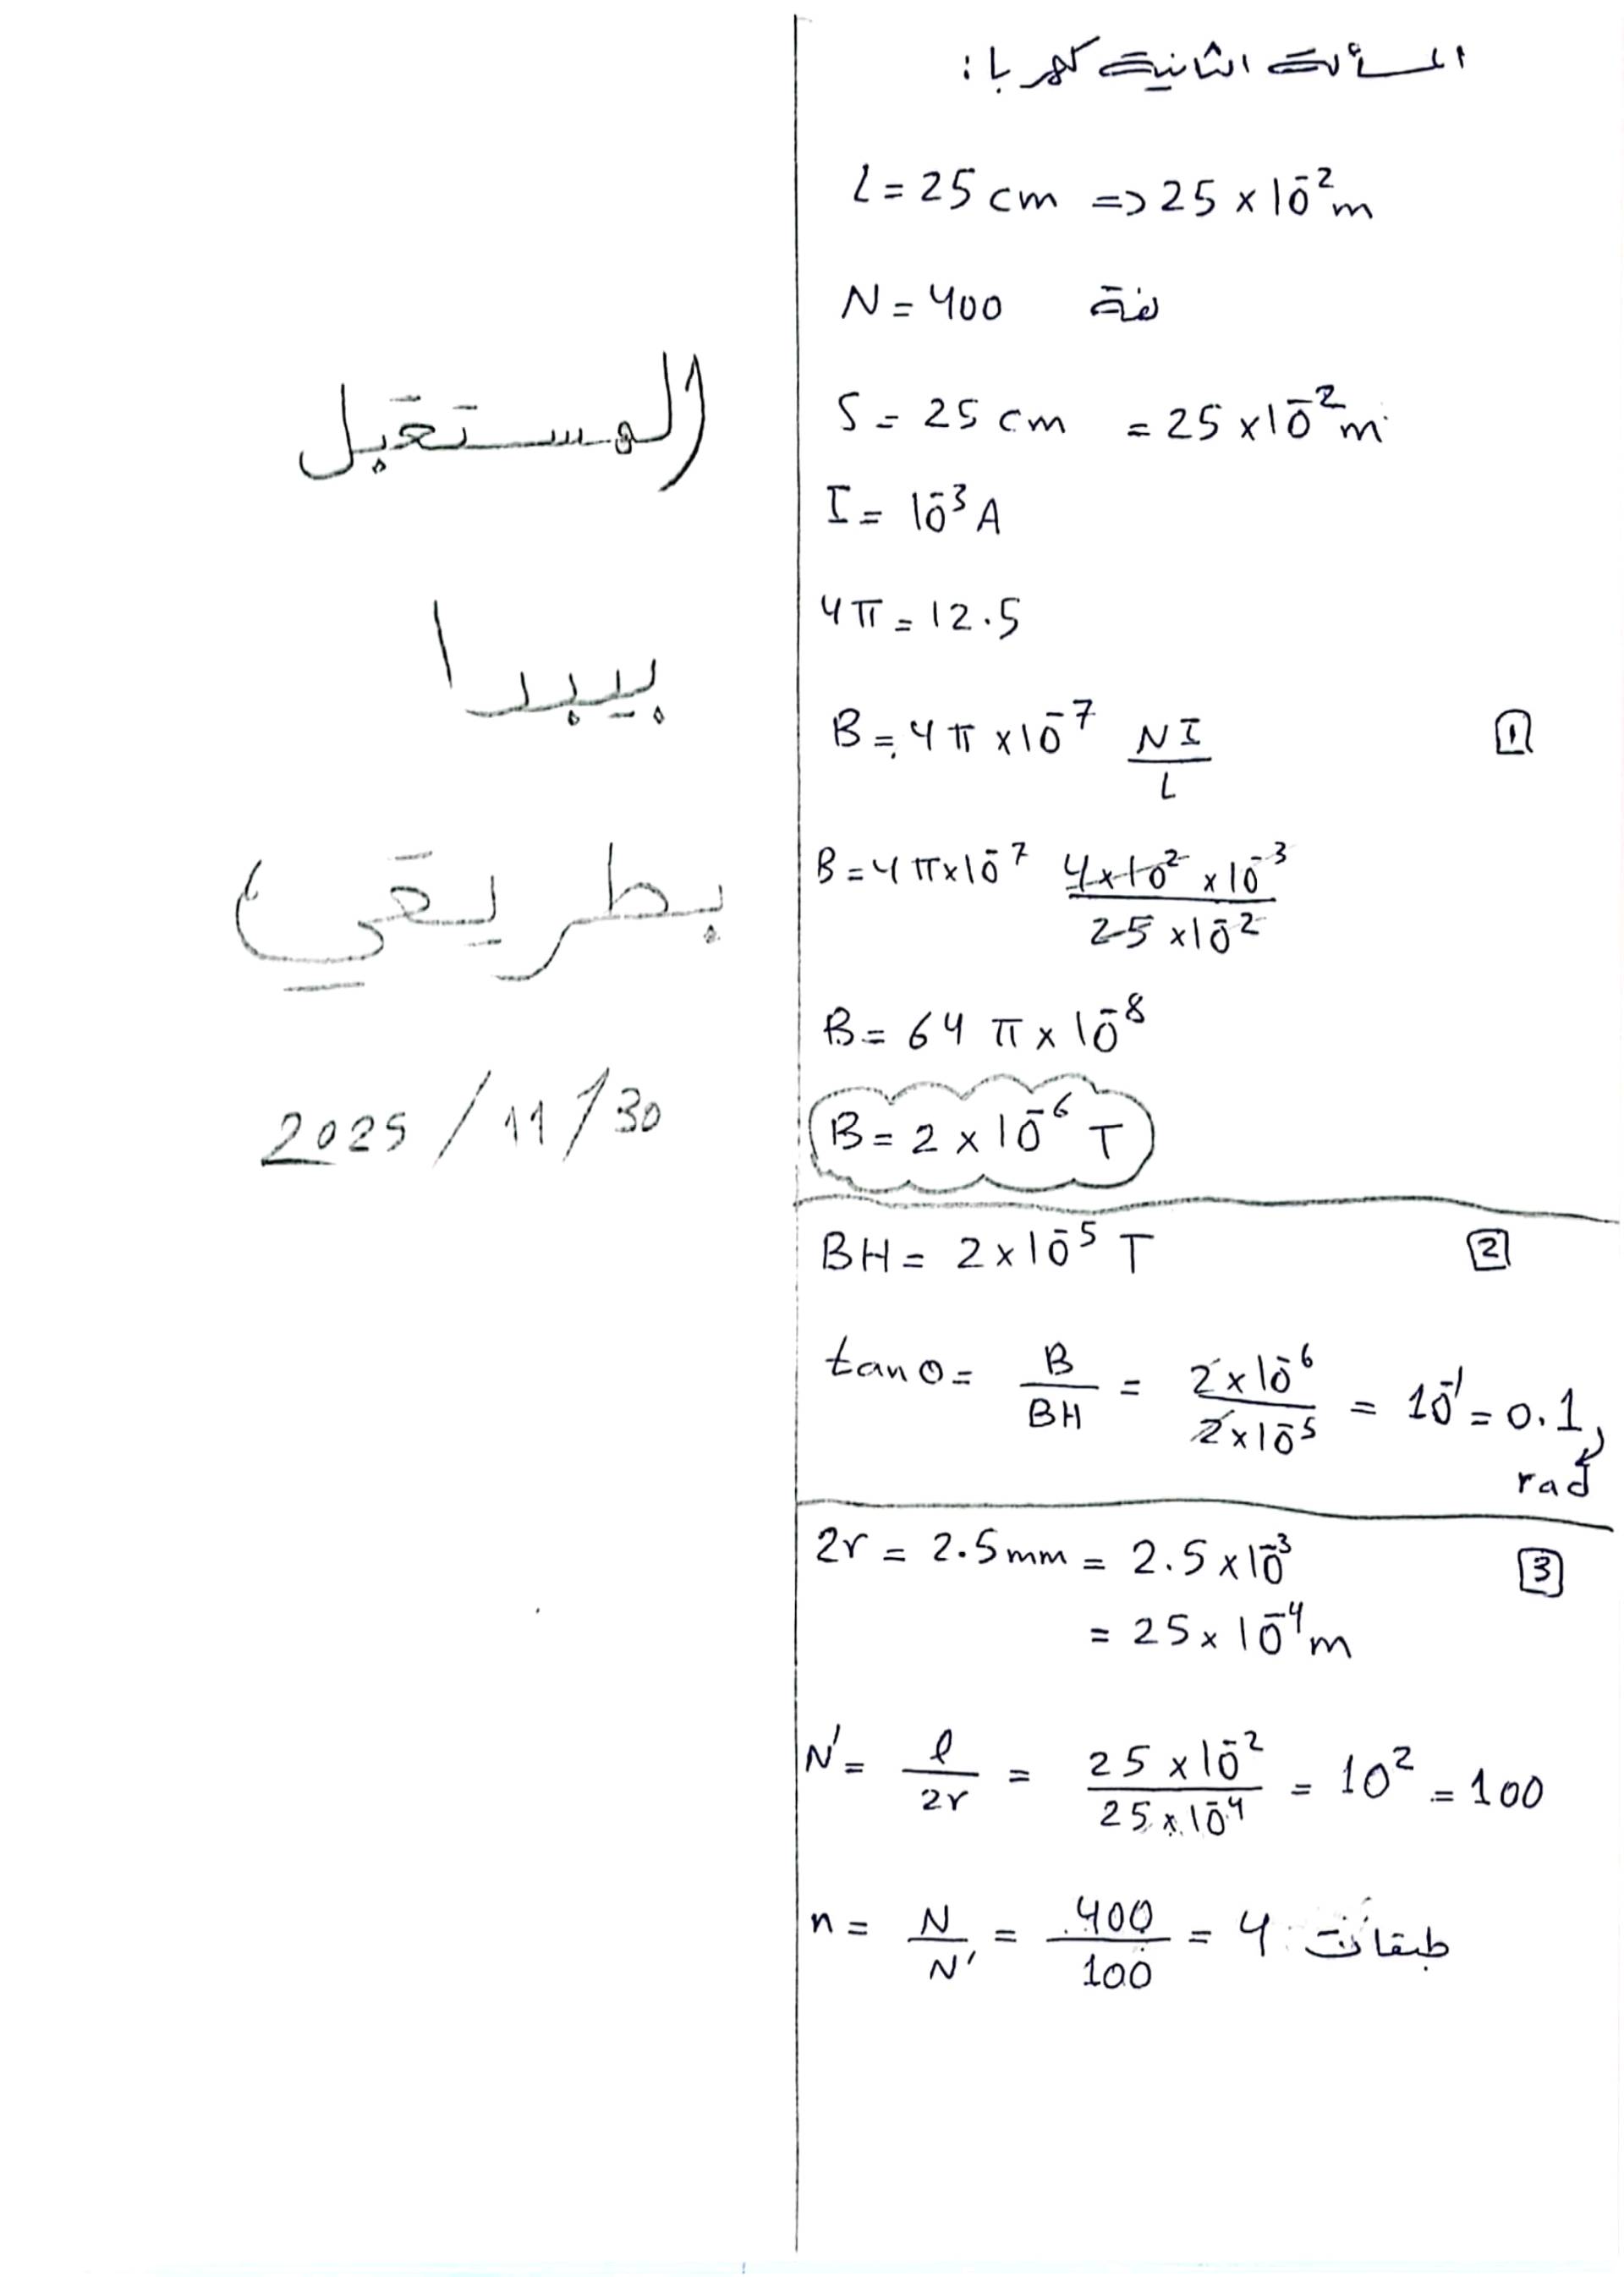 المسألة الثانية كهربا:
L = 25 cm => 25 × 10⁻² m
N = 400 لفة
S = 25 cm = 25 × 10⁻² m
I = 10⁻³ A
4π = 12.5
B = 4π × 10⁻⁷ NI / L 1
B = 4π × 10⁻⁷ 4 × 10² × 10⁻³ / 25 × 10⁻²
B = 64 π × 10⁻⁸
B = 2 × 10⁻⁶ T
BH = 2 × 10⁻⁵ T 2
tan θ = B / BH = 2 × 10⁻⁶ / 2 × 10⁻⁵ = 10⁻¹ = 0.1
rad
2r = 2.5 mm = 2.5 × 10⁻³ 3
= 25 × 10⁻⁴ m
N' = l / 2r = 25 × 10⁻² / 25 × 10⁻⁴ = 10² = 100
n = N / N' = 400 / 100 = 4 طبقات
المستقبل
يبدا
بطريقي
2025 / 11 / 30